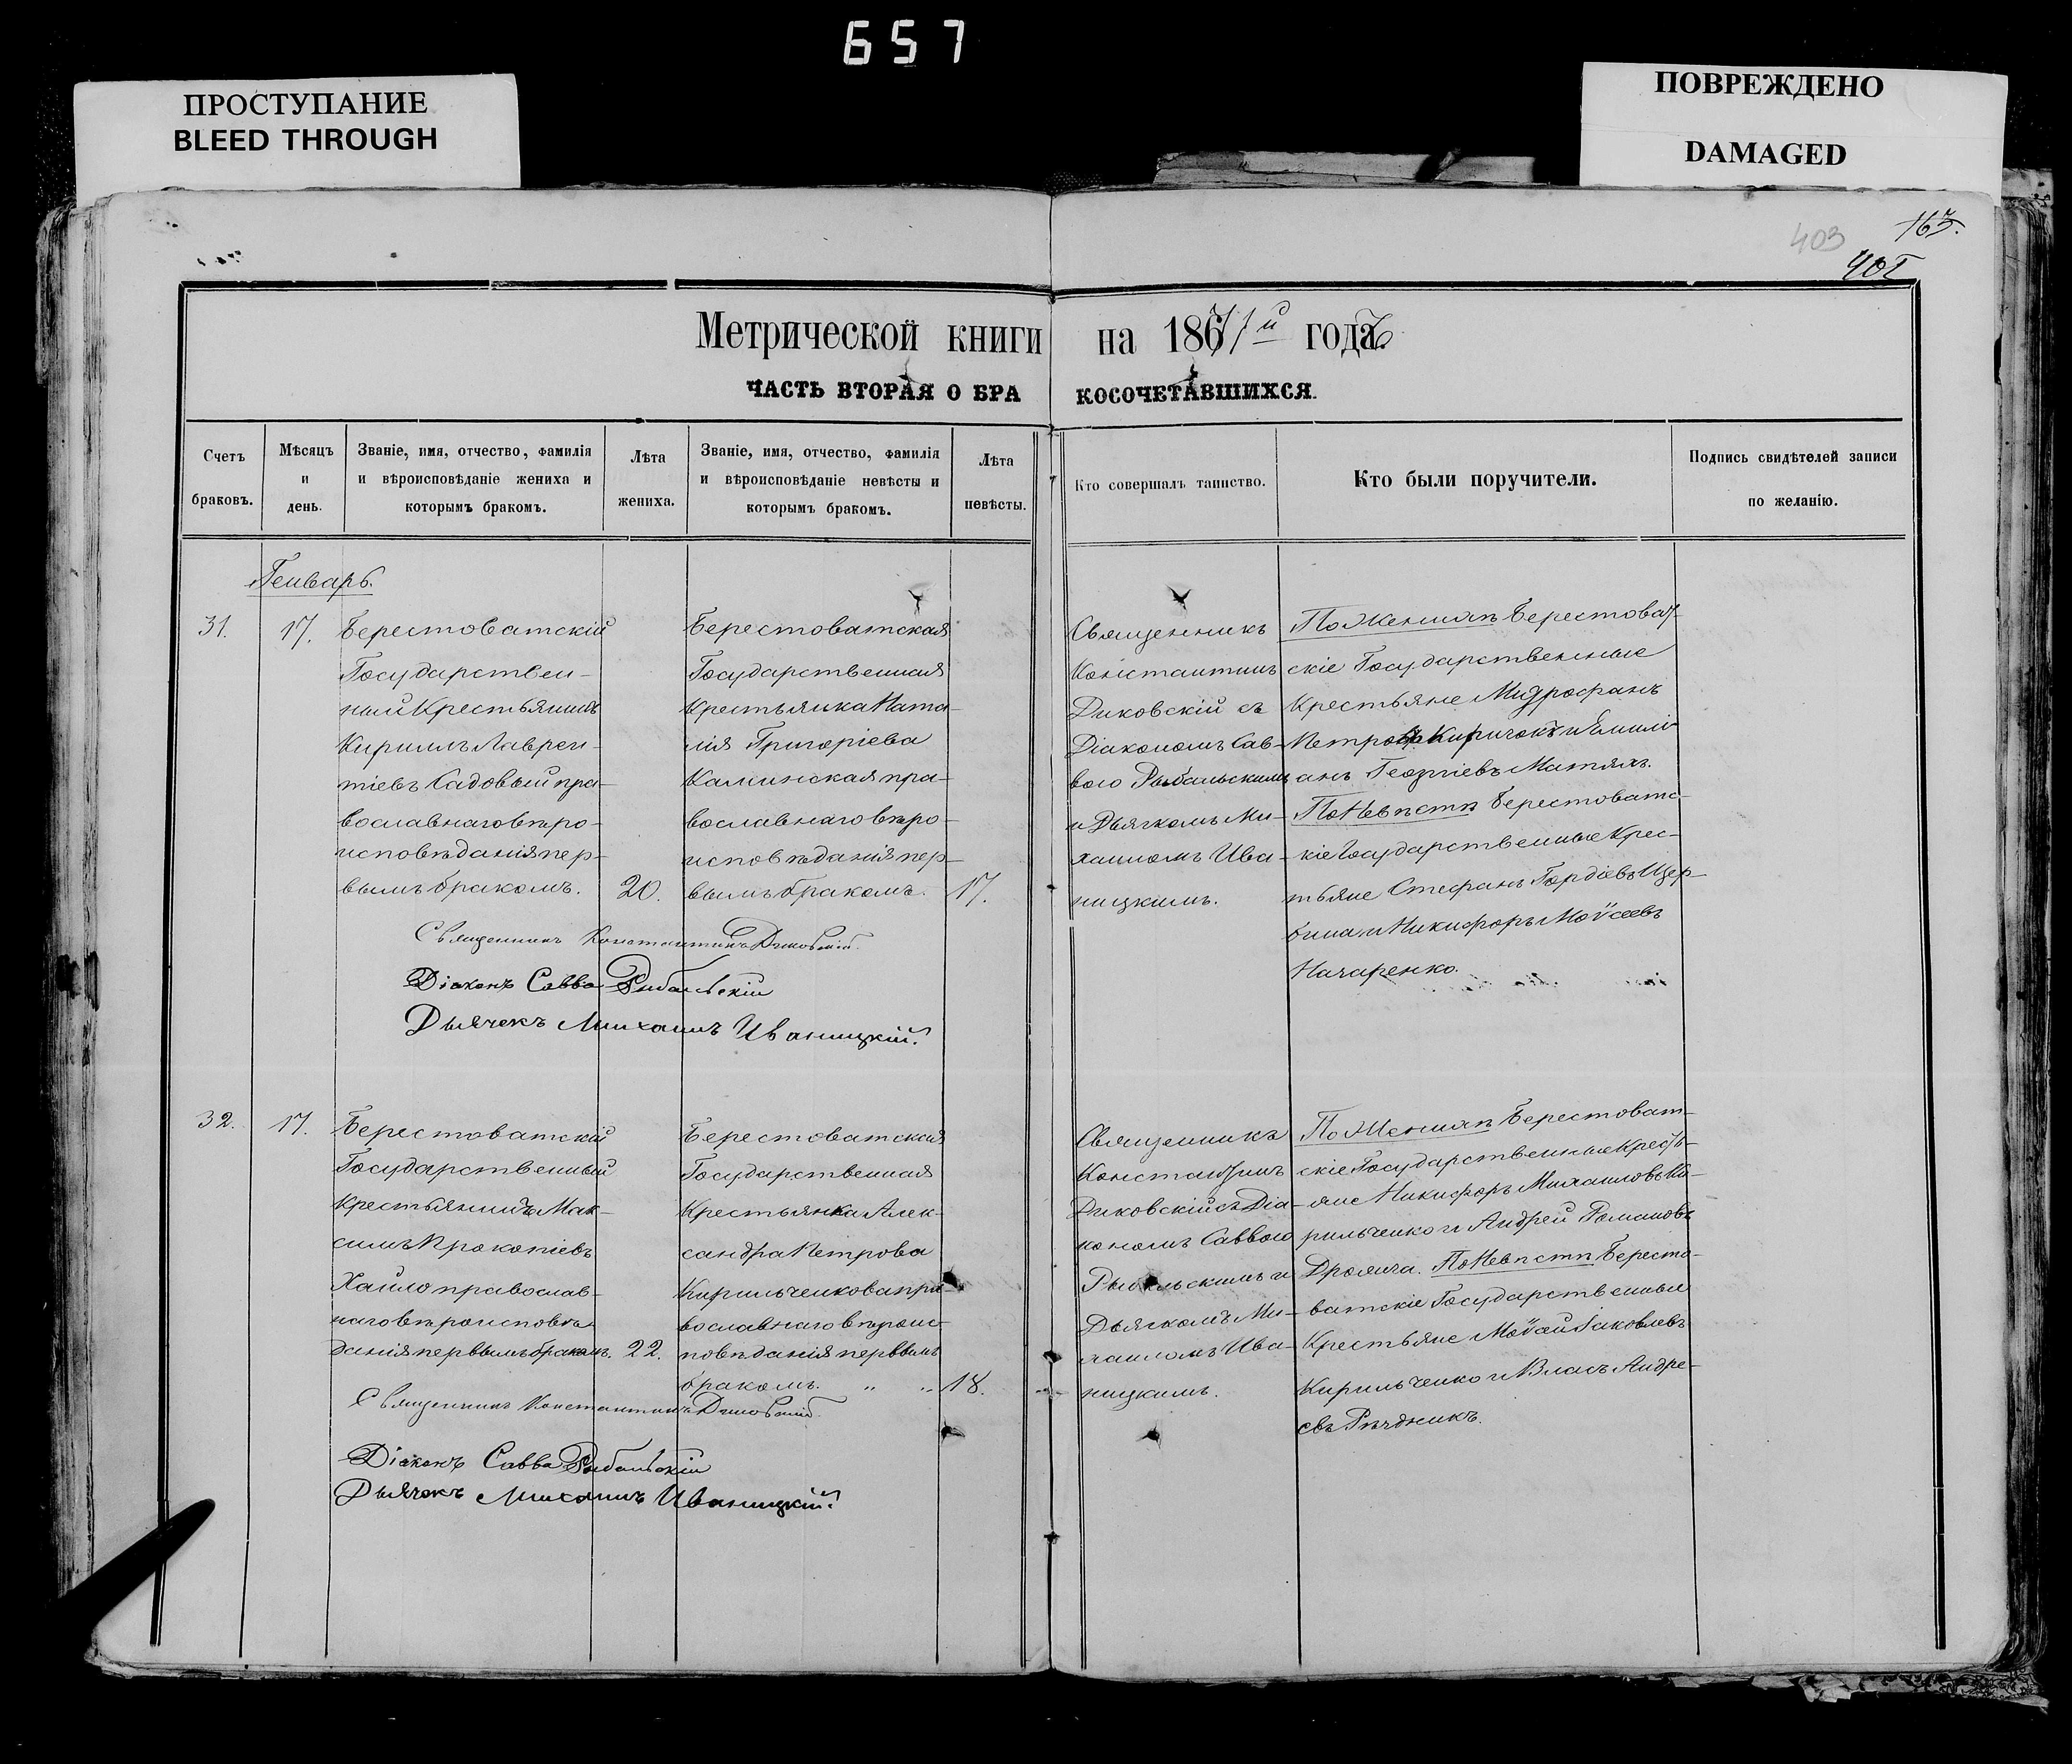 657
ПРОСТУПАНИЕ
BLEED THROUGH
ПОВРЕЖДЕНО
DAMAGED
403
163.
Метрической книги на 1871й годъ
ЧАСТЬ ВТОРАЯ О БРАКОСОЧЕТАВШИХСЯ.
Счетъ
браковъ.
Мѣсяцъ
и
день.
Званіе, имя, отчество, фамилія
и вѣроисповѣданіе жениха и
которымъ бракомъ.
Лѣта
жениха.
Званіе, имя, отчество, фамилія
и вѣроисповѣданіе невѣсты и
которымъ бракомъ.
Лѣта
невѣсты.
Кто совершалъ таинство.
Кто были поручители.
Подпись свидѣтелей записи
по желанію.
Генварь.
31.
17.
Берестоватскій
Государствен-
ный Крестьянинъ
Кириллъ Лаврен-
тіевъ Садовый пра-
вославнаго вѣро-
исповѣданія пер-
вымъ бракомъ.
20.
Берестоватская
Государственная
Крестьянка Ната-
лія Григоріева
Калинская пра-
вославнаго вѣро-
исповѣданія пер-
вымъ бракомъ.
17.
Священникъ
Константинъ
Диковскій съ
Діакономъ Сав-
вою Рыбальскимъ
и Дьячкомъ Ми-
хаиломъ Ива-
ницкимъ.
По Женихѣ Берестоват-
скіе Государственные
Крестьяне Митрофанъ
Петровъ Киричокъ и Емилі-
анъ Георгіевъ Матяхъ.
По Невѣстѣ Берестоватс-
кіе Государственные Крес-
тьяне Стефанъ Гордіевъ Щер-
бина и Никифоръ Моѵсеевъ
Начаренко.
Священникъ Константинъ Диковскій
Діаконъ Савва Рыбальскій
Дьячекъ Михаилъ Иваницкій.
32.
17.
Берестоватскій
Государственный
Крестьянинъ Мак-
симъ Прокопіевъ
Хайло православ-
наго вѣроисповѣ-
данія первымъ бракомъ.
22.
Берестоватская
Государственная
Крестьянка Алек-
сандра Петрова
Кирильченкова пра-
вославнаго вѣроис-
повѣданія первымъ
бракомъ. " "
18.
Священникъ
Константинъ
Диковскій съ Діа-
кономъ Саввою
Рыбальскимъ и
Дьячкомъ Ми-
хаиломъ Ива-
ницкимъ.
По Женихѣ Берестоват-
скіе Государственные Кресть-
яне Никифоръ Михаиловъ Ки-
рильченко и Андрей Романовъ
По Невѣстѣ Бересто-
ватскіе Государственные
Крестьяне Моѵсей Іаковлевъ
Кирильченко и Власъ Андре-
евъ Рѣчдникъ.
Священникъ Константинъ Диковскій
Діаконъ Савва Рыбальскій
Дьячекъ Михаилъ Иваницкій.